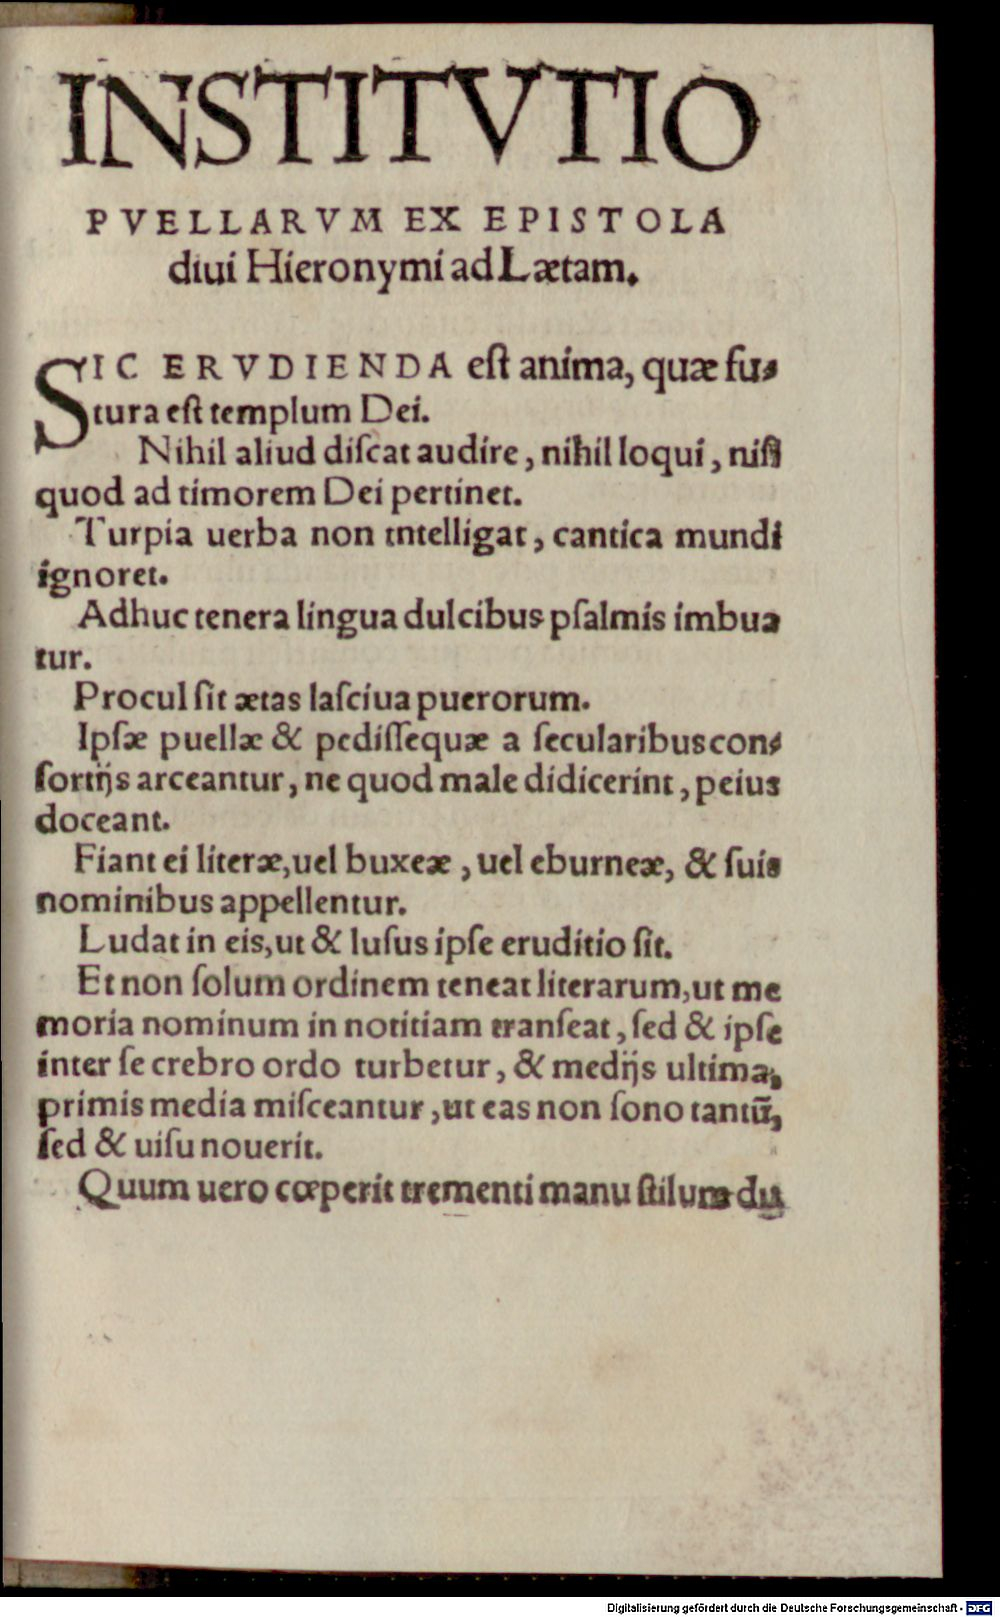 INSTITVTIO
PVELLARVM EX EPISTOLA
diui Hieronymi ad Lætam.
SIC ERVDIENDA eſt anima, quæ fu⸗
tura eſt templum Dei.
Nihil aliud diſcat audire, nihil loqui, niſi
quod ad timorem Dei pertinet.
Turpia uerba non intelligat, cantica mundi
ignoret.
Adhuc tenera lingua dulcibus pſalmis imbua
tur.
Procul ſit ætas laſciua puerorum.
Ipſæ puellæ & pediſſequæ a ſecularibus con⸗
ſortijs arceantur, ne quod male didicerint, peius
doceant.
Fiant ei literæ, uel buxeæ, uel eburneæ, & ſuis
nominibus appellentur.
Ludat in eis, ut & luſus ipſe eruditio ſit.
Et non ſolum ordinem teneat literarum, ut me
moria nominum in notitiam tranſeat, ſed & ipſe
inter ſe crebro ordo turbetur, & medijs ultima,
primis media miſceantur, ut eas non ſono tantū,
ſed & uiſu nouerit.
Quum uero cœperit trementi manu ſtilum du
Digitalisierung gefördert durch die Deutsche Forschungsgemeinschaft - DFG